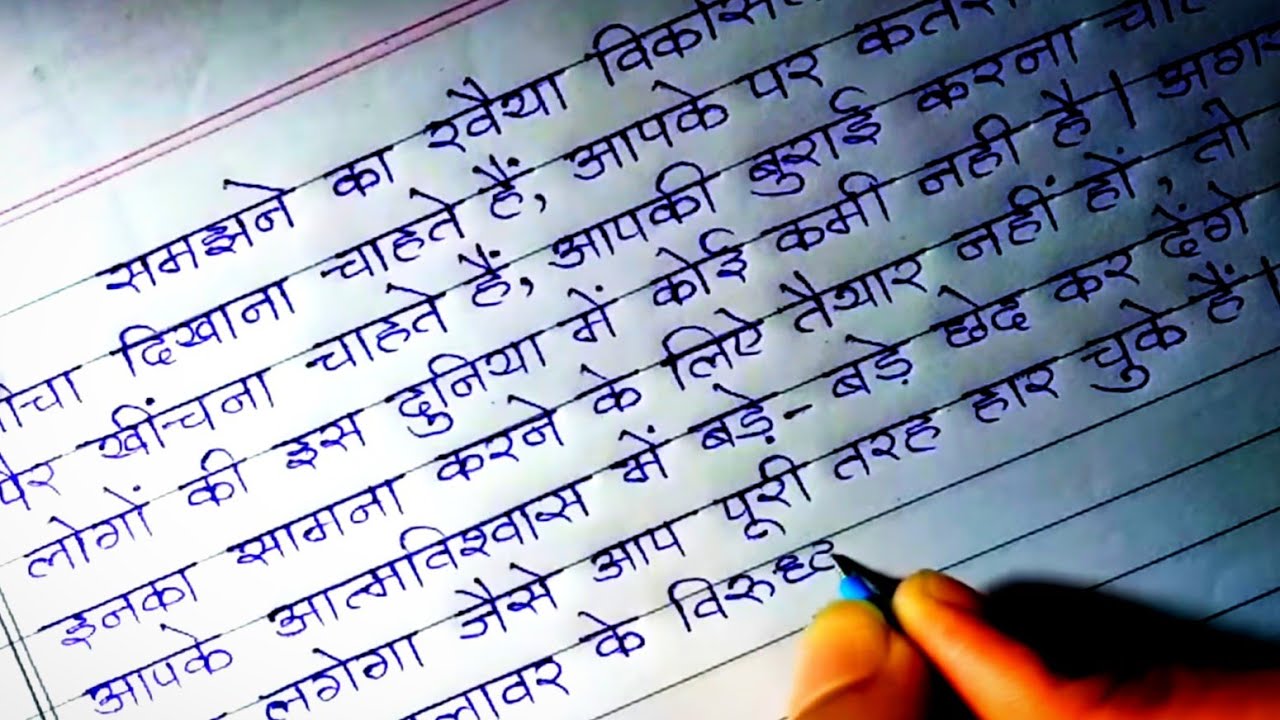 समझने का रवैया
दिखाना चाहते हैं, आपके पर
पैर खींचना चाहते हैं, आपकी बुराई करना
लोगों की इस दुनिया में कोई कमी नही है। अगर
इनका सामना करने के लिऐ तैयार नहीं हों, तो
आपके आत्मविश्वास में बड़े-बड़े छेद कर देंगे
लगेगा जैसे आप पूरी तरह हार चुके हैं।
के